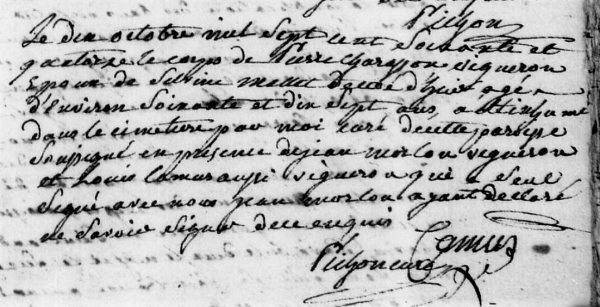 Pichon
Le dix octobre mil sept cent soixante et
quatorze le corps de Pierre vigneron
Epoux de decede d'hier agé
d'environ soixante et dix sept ans, a été inhumé
dans le cimetiere par moi curé de cette paroisse
soussigné en presence de jean morlon vigneron
et Louis aussi vigneron qui a seul
signé avec nous jean morlon ayant declaré
ne savoir signer de ce enquis
Pichon curé